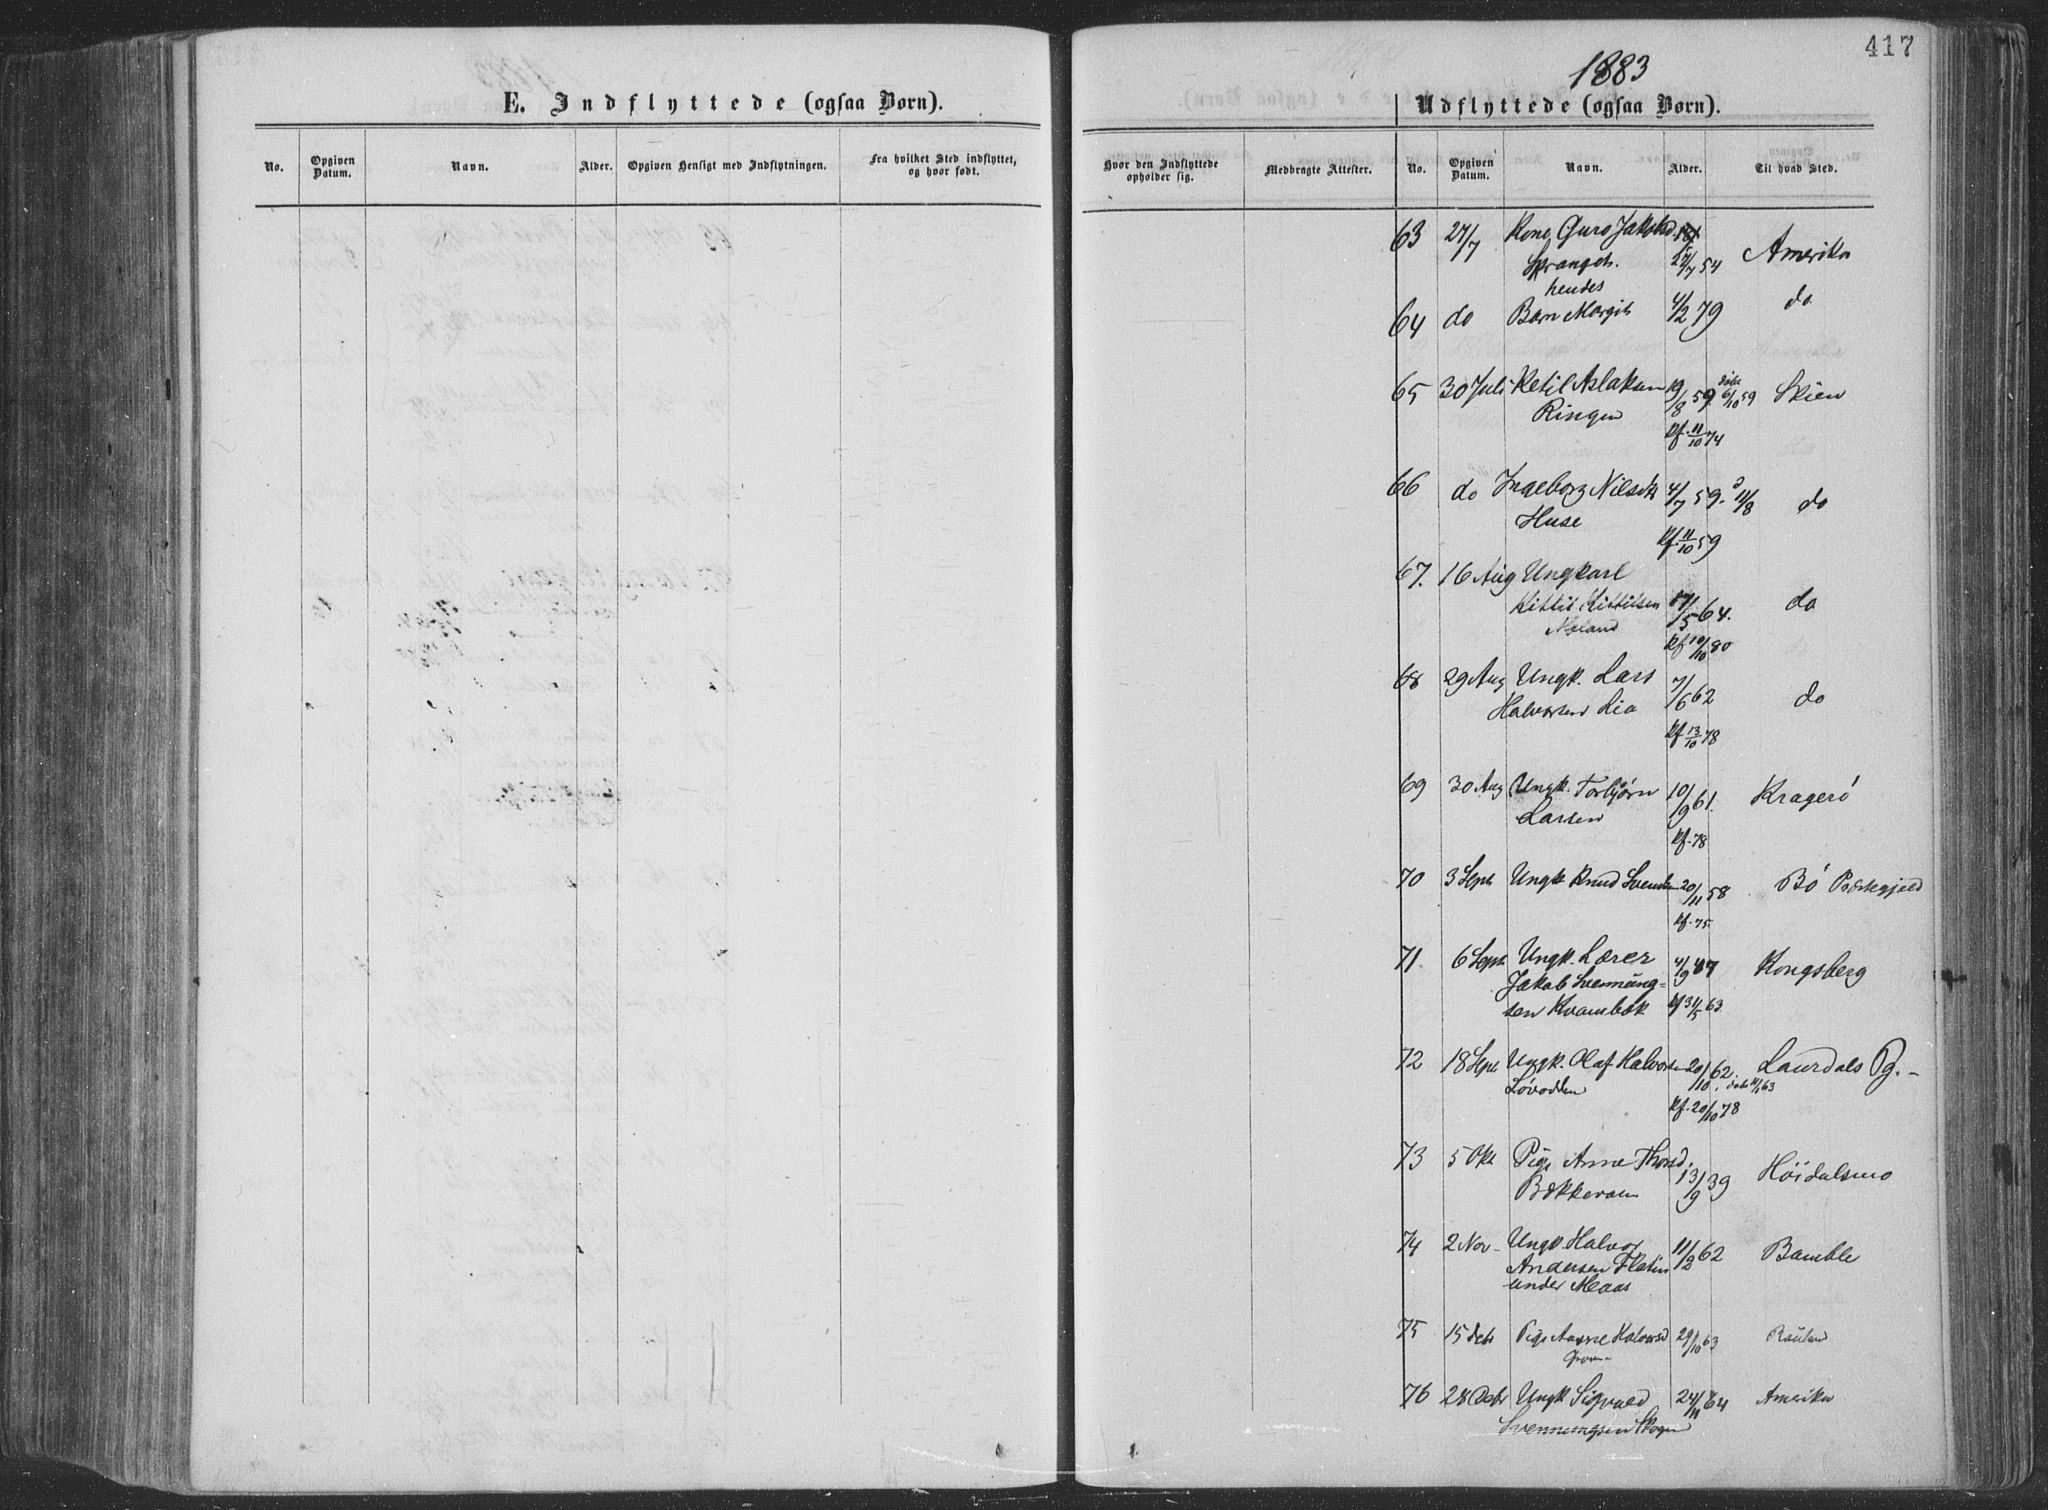 417
1883
E. Indflyttede (ogsaa Børn).
Udflyttede (ogsaa Børn).
No. Opgiven Datum. Navn. Alder. Opgiven Hensigt med Indflytningen. Fra hvilket Sted indflyttet, og hvor født.
Hvor den Indflyttede opholder sig. Medbragte Attester. No. Opgiven Datum. Navn. Alder. Til hvad Sted.
63 27/7 Kone Guro Jakobsd 27/7 54 Amerika
hendes
64 do Barn Margit 4/2 79 do
65 30 Juli Ketil Aslaksen 19/8 59. døbt 6/10 59 Skien
Ringen
Kf. 11/10 74
66 do Ingeborg Nilsdt 4/7 59. d 11/8 do
Huse
Kf. 11/10 59
67. 16 Aug Ungkarl
Kittil Kittilsen /5 64. do
Moland
Kf 10/10 80
68 29 Aug Ungk. Lars 7/6 62 do
Halvorsen Lia
Kf 13/10 78
69 30 Aug Ungk. Torbjørn 10/9 61. Kragerö
Larsen
Kf. 78
70 3 Sept Ungk Knud Svendsen 20/11 58 Bö Præstegjeld
Kf. 75.
71 6 Sept Ungk. Lærer 4/9 47 Kongsberg
Jakob Svennung-
sen Kvambæk Kf 31/5 63
72 18 Sept Ungk. Olaf Halvorsen 20/10 62. Laurdals Pg.
Lövodden døbt 11/1 63
Kf. 20/10 78
73 5 Okt Pige Anne Thorsd. 13/9 39 Höidalsmo
Bækkevam
74 2 Nov Ungk. Halvor 11/2 62 Bamble
Andersen Flatin
under Maas
75 15 Debr Pige Aasne Halvorsd 29/10 63 Rauland
76 28 Debr Ungk Sigvald 24/11 64 Amerika
Svenningsen Skogen